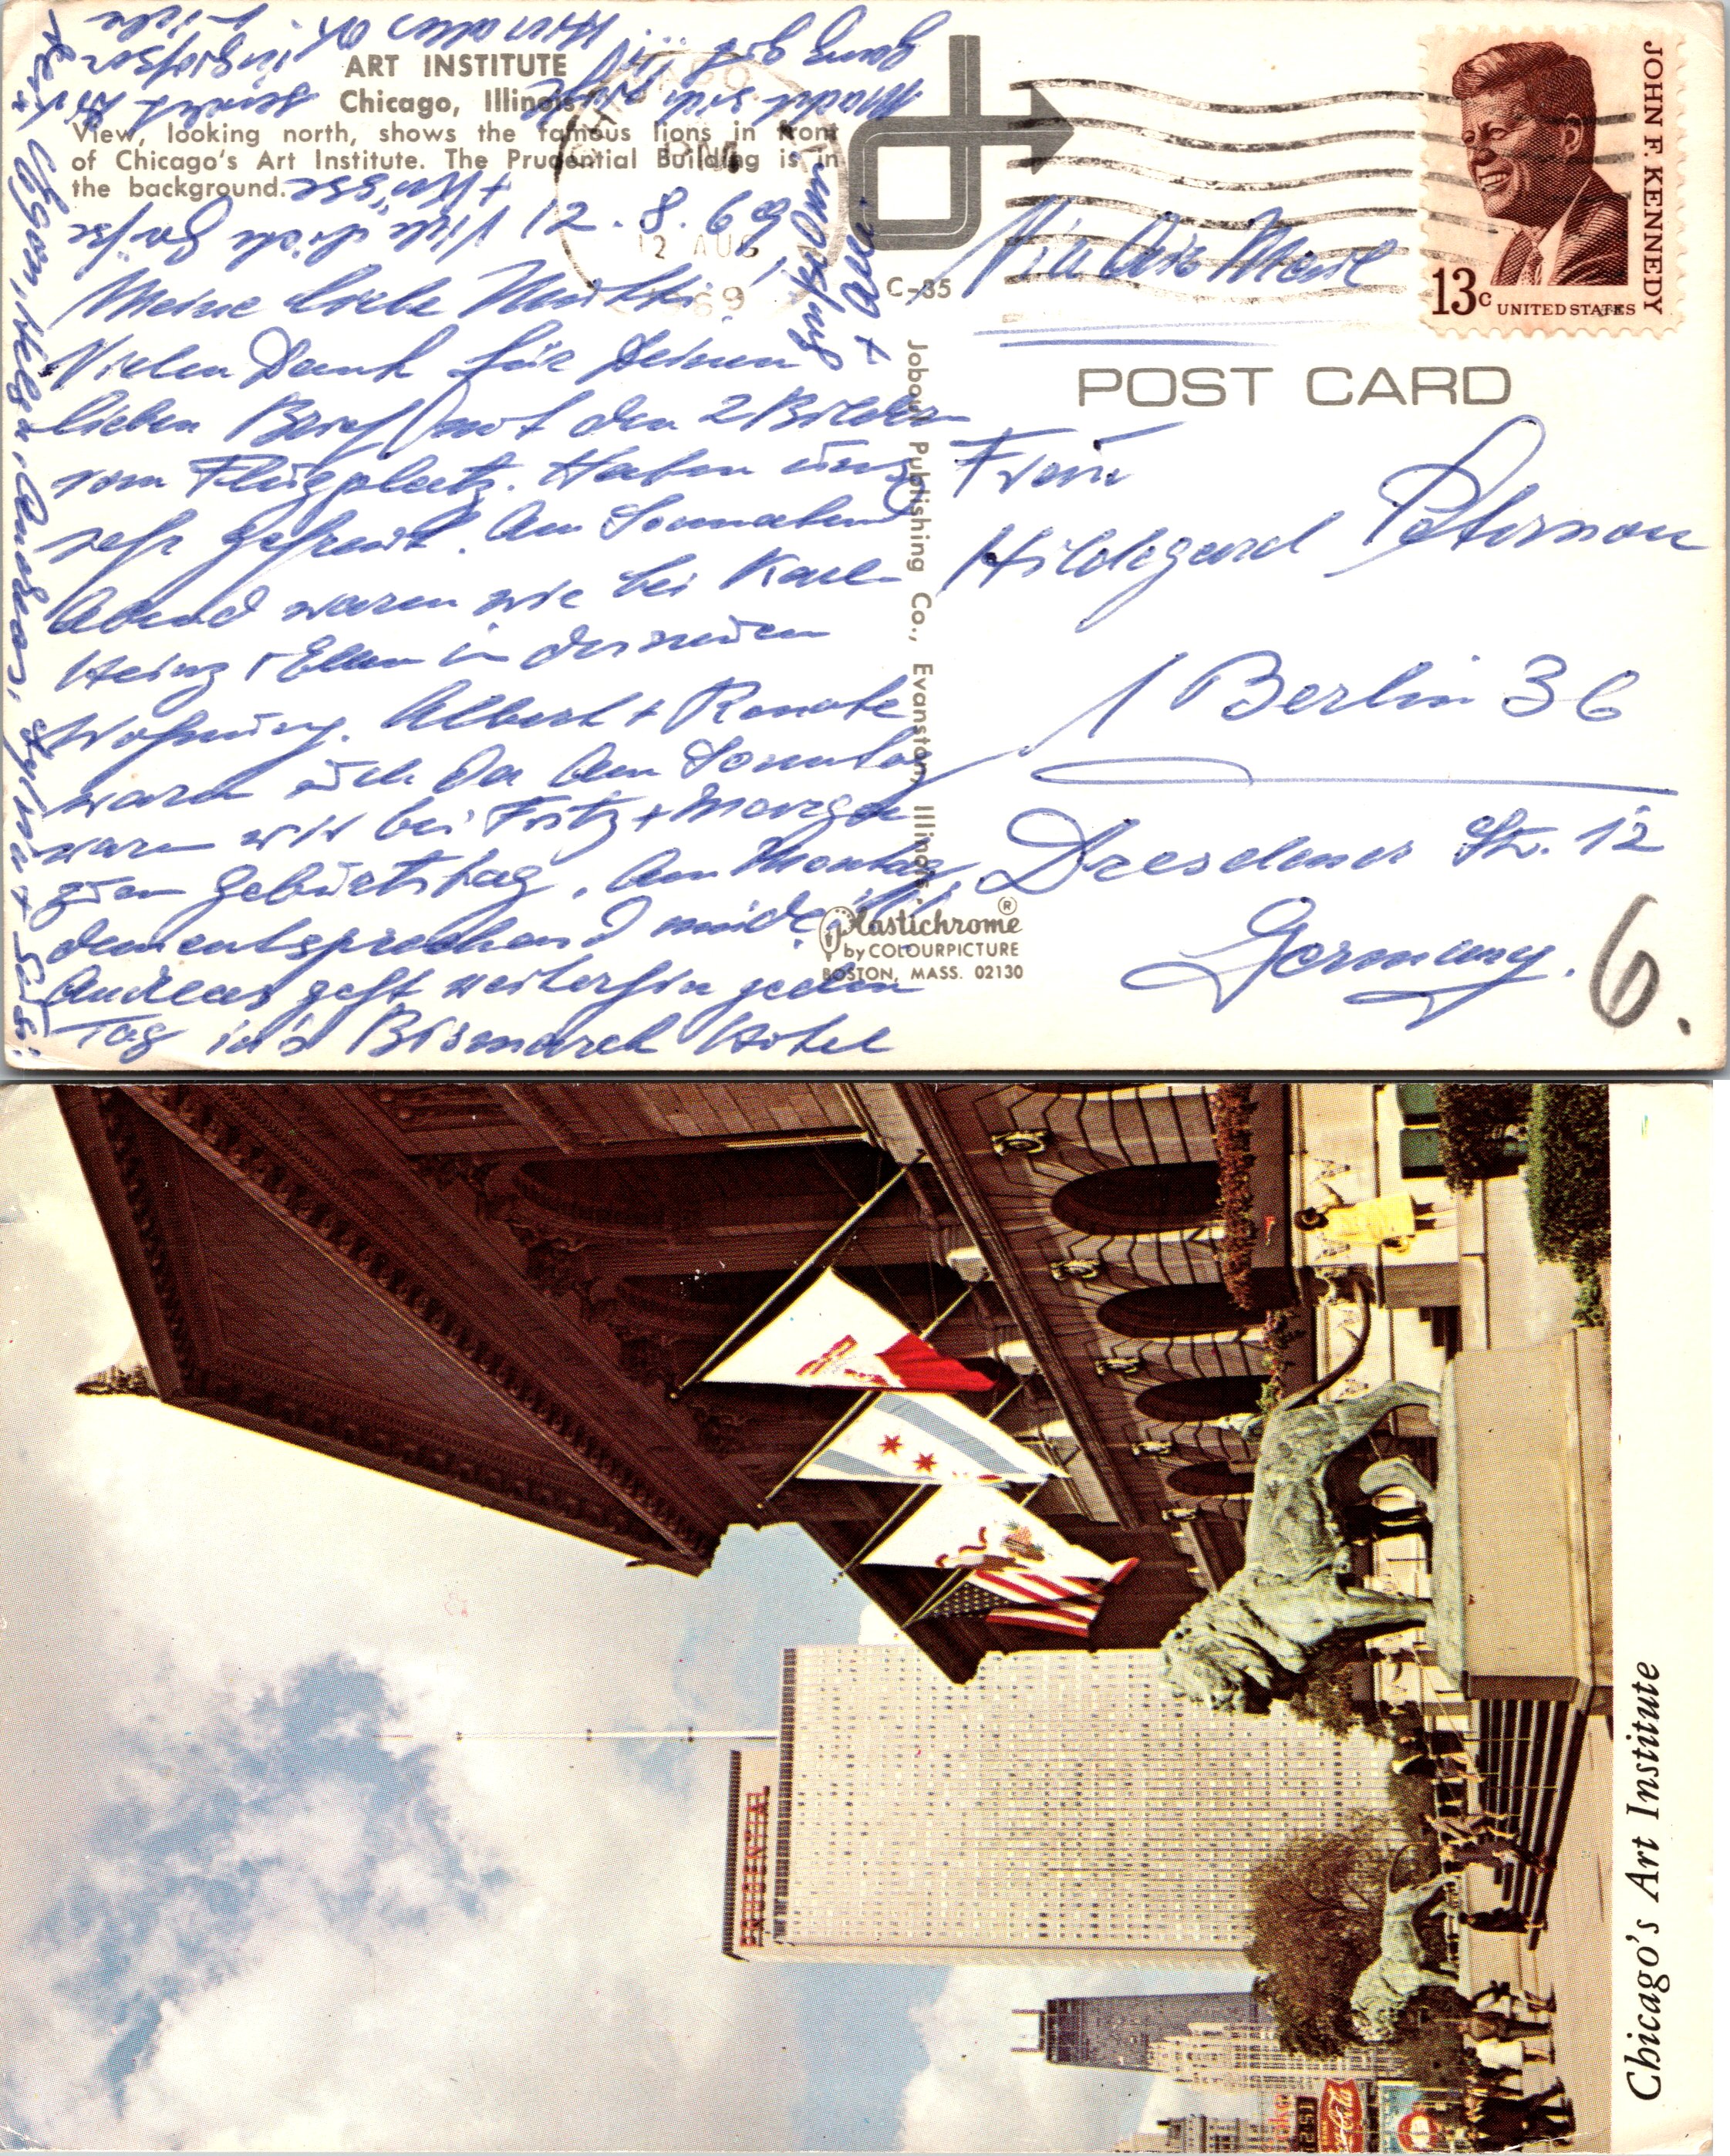 ART INSTITUTE
Chicago, Illinois
View, looking north, shows the famous lions in front
of Chicago's Art Institute. The Prudential Building is in
the background.
12.8.69
Meine liebe Mutti!
Vielen Dank für Deinen
lieben Brief mit den 2 Bildern
vom Flugplatz. Haben uns
sehr gefreut. Am Sonnabend
Abend waren wir bei Karl-
Heinz + Ellen in der neuen
Wohnung. Albert + Renate
waren auch da. Am Sonntag
waren wir bei Fritz + Margot
zum Geburtstag. Am Montag
dementsprechend müde.
Andreas geht weiterhin jeden
Tag in's Bismarck Hotel
Macht sich
ganz gut
Viele liebe Grüße
+ Küsse
CHICAGO
12 AUG
1969
C-35
Via Air Mail
JOHN F. KENNEDY
13c UNITED STATES
POST CARD
Frau
Hildegard Peterson
1 Berlin 36
Dresdener Str. 12
Germany.
6.
Jobour Publishing Co., Evanston, Illinois.
Plastichrome ®
by COLOURPICTURE
BOSTON, MASS. 02130
PRUDENTIAL
Chicago's Art Institute